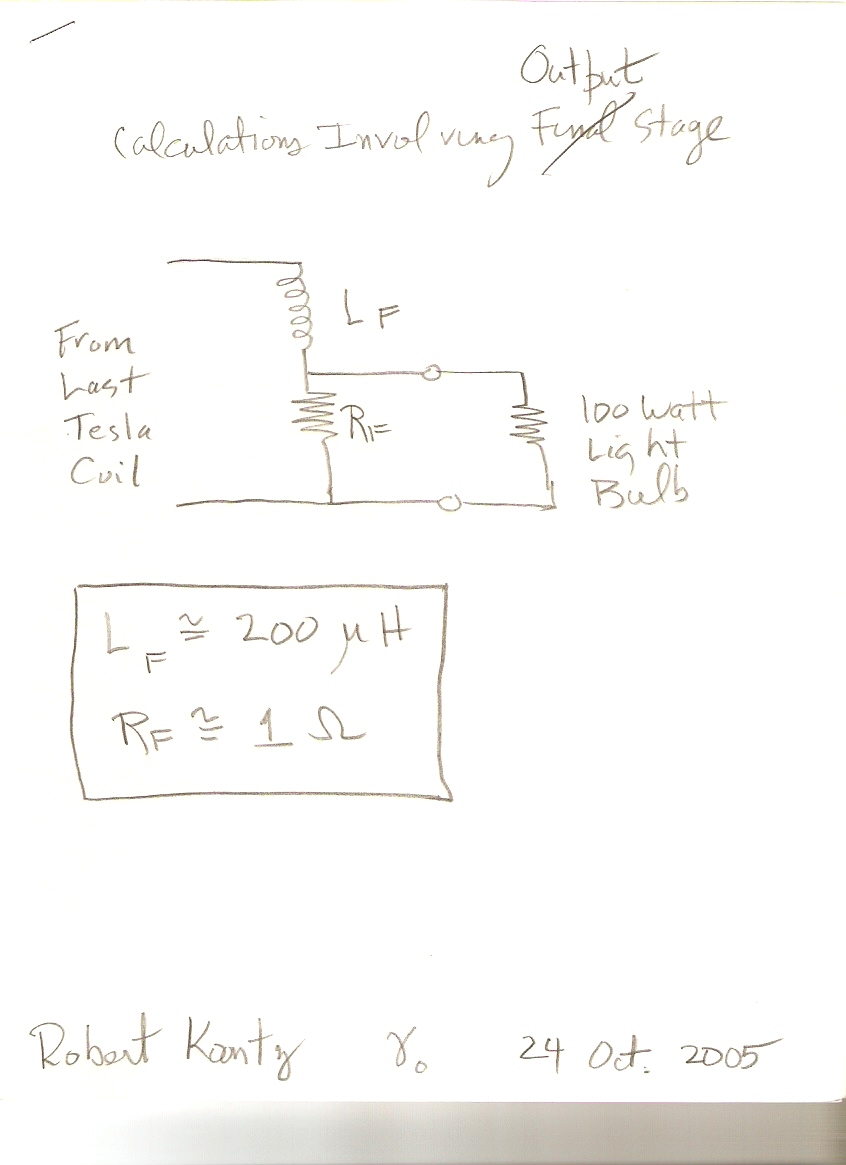 Output
Calculations Involving Final Stage
L F
From
Last
Tesla
Coil
RF
100 Watt
Light
Bulb
LF ≅ 200 μH
RF ≅ 1 Ω
Robert Kantz γo 24 Oct. 2005